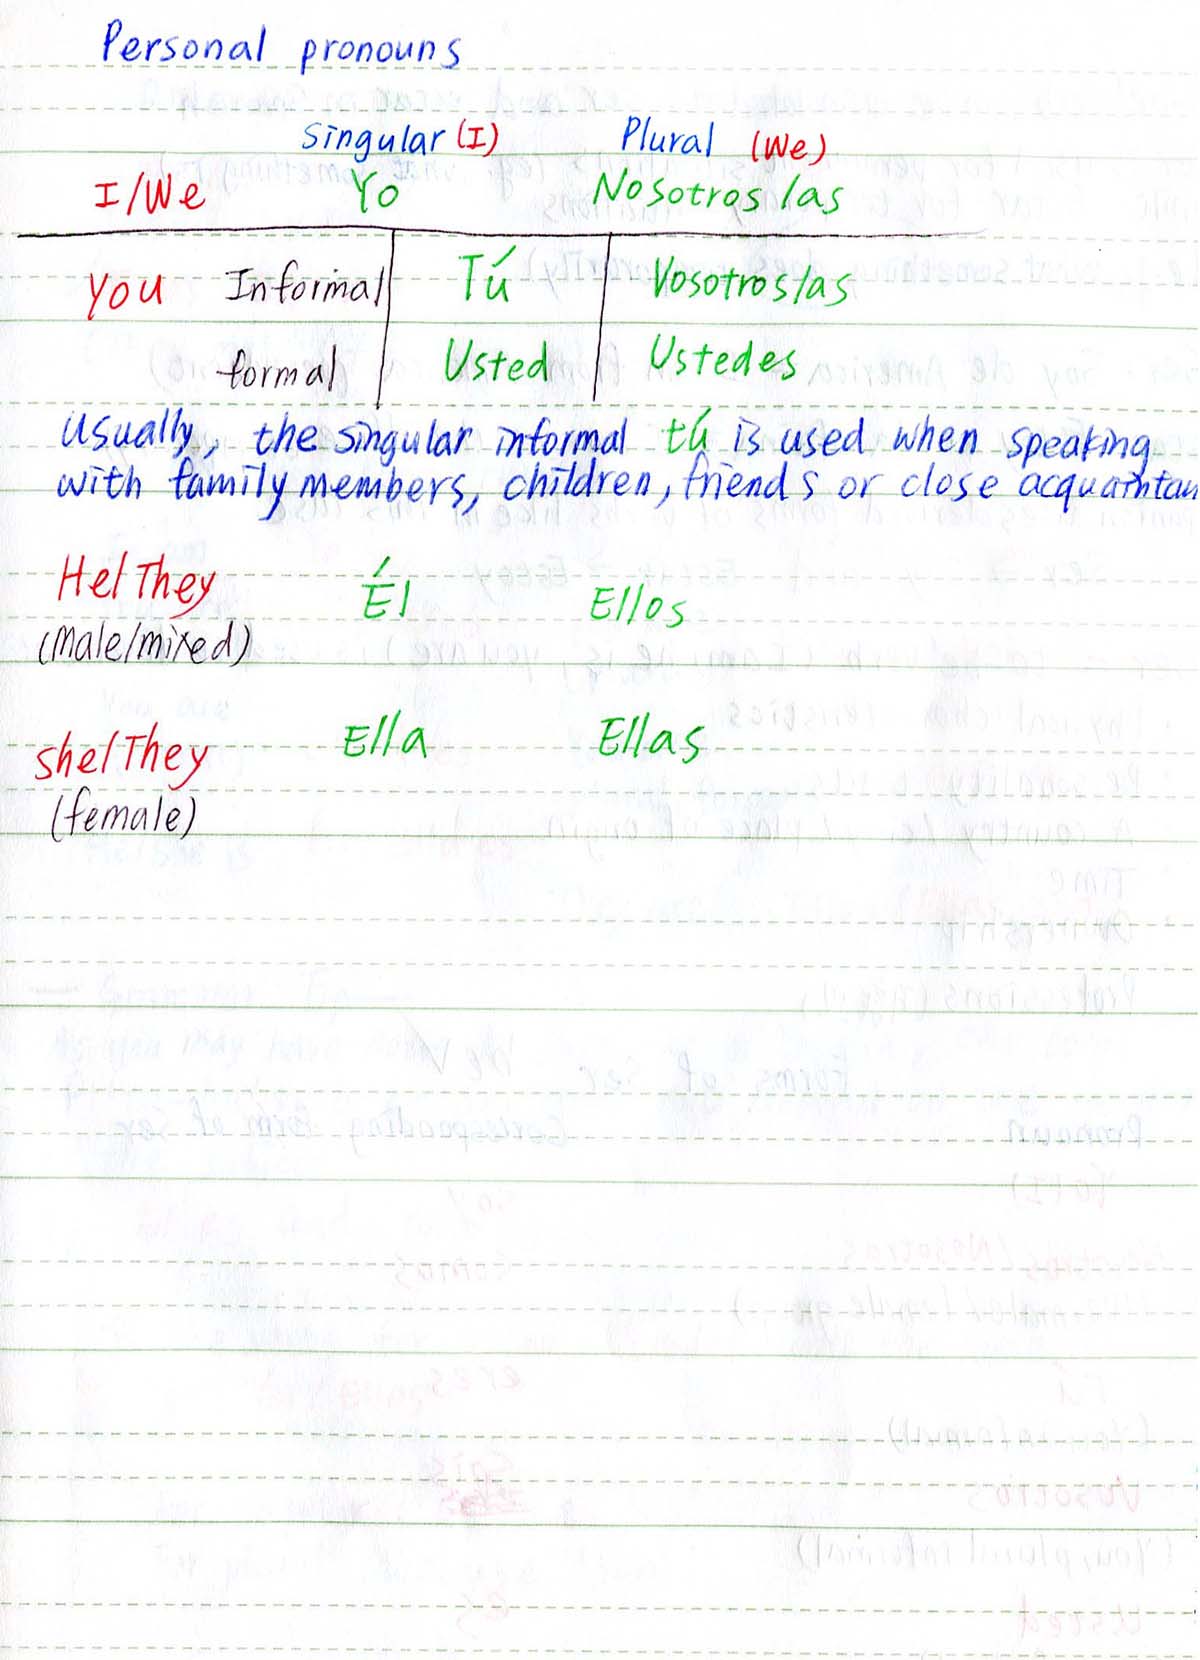 Personal pronouns
Singular (I) Plural (We)
I/We Yo Nosotros/as
You Informal Tú Vosotros/as
formal Usted Ustedes
Usually, the singular informal tú is used when speaking
with family members, children, friends or close
He/They Él Ellos
(male/mixed)
She/They Ella Ellas
(female)